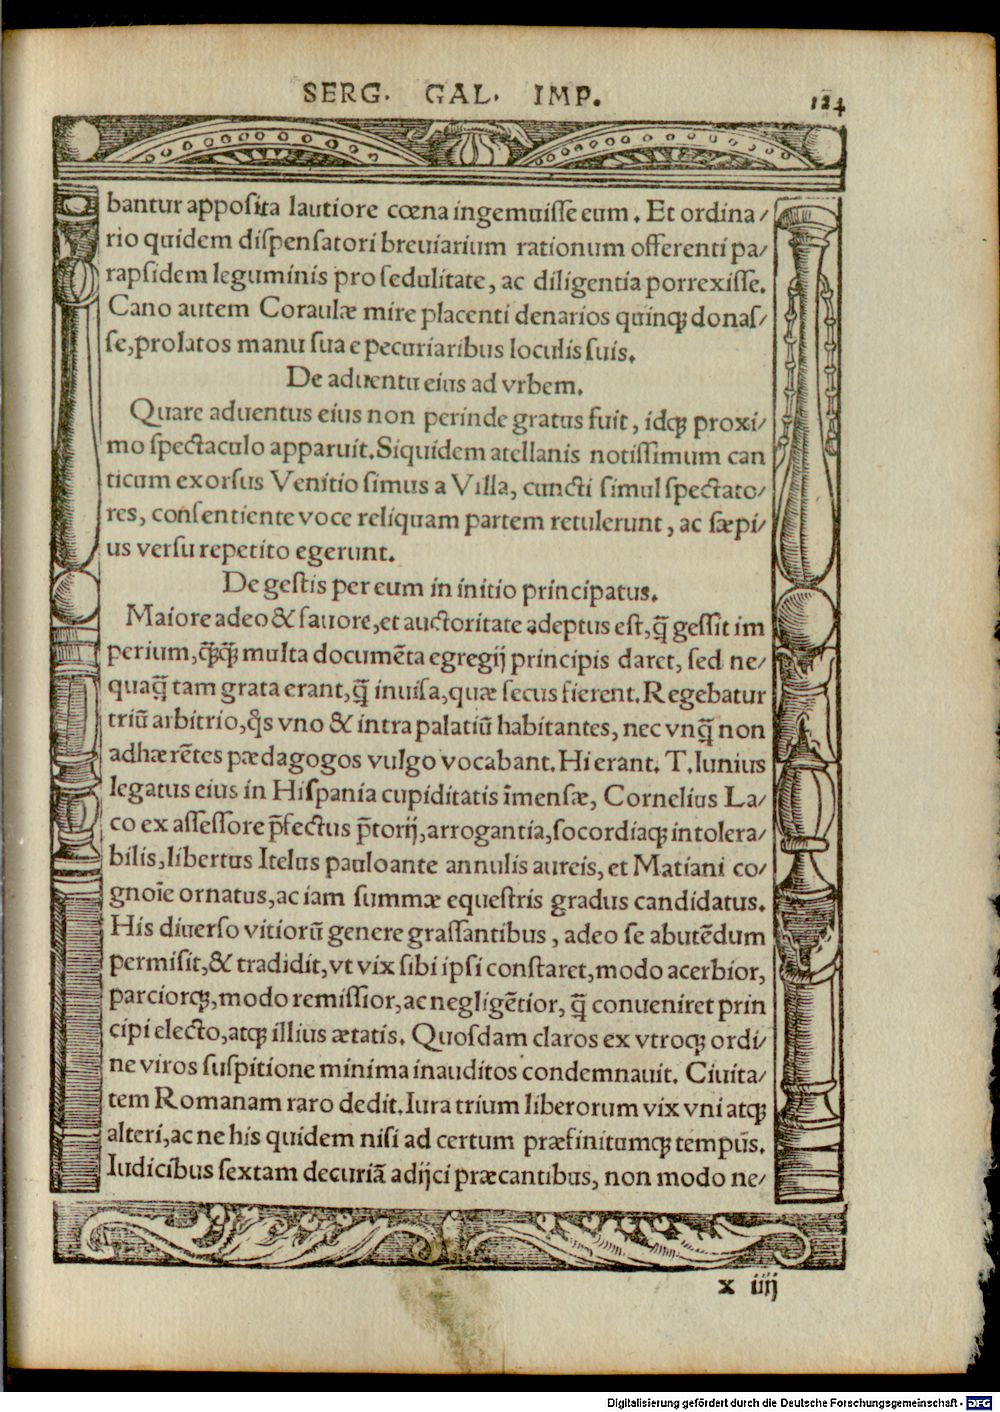 SERG. GAL. IMP.
124
bantur apposita lautiore cœna ingemuisse eum. Et ordina/
rio quidem dispensatori breuiarium rationum offerenti pa/
rapsidem leguminis pro sedulitate, ac diligentia porrexisse.
Cano autem Coraulæ mire placenti denarios quinqꝫ donas/
se, prolatos manu sua e peculiaribus loculis suis.
De aduentu eius ad vrbem.
Quare aduentus eius non perinde gratus fuit, idqꝫ proxi/
mo spectaculo apparuit. Siquidem atellanis notissimum can
ticum exorsus Venitio simus a Villa, cuncti simul spectato/
res, consentiente voce reliquam partem retulerunt, ac sæpi/
us versu repetito egerunt.
De gestis per eum in initio principatus.
Maiore adeo & fauore, et auctoritate adeptus est, q̃ gessit im
perium, q̃q̃ multa documẽta egregij principis daret, sed ne/
quaq̃ tam grata erant, q̃ inuisa, quæ secus fierent. Regebatur
triũ arbitrio, q̊s vno & intra palatiũ habitantes, nec vnq̃ non
adhærẽtes pædagogos vulgo vocabant. Hi erant. T. Iunius
legatus eius in Hispania cupiditatis ĩmensæ, Cornelius La/
co ex assessore p̃fectus p̃torij, arrogantia, socordiaqꝫ intolera/
bilis, libertus Itelus pauloante annulis aureis, et Matiani co/
gnoĩe ornatus, ac iam summæ equestris gradus candidatus.
His diuerso vitiorũ genere grassantibus, adeo se abutẽdum
permisit, & tradidit, vt vix sibi ipsi constaret, modo acerbior,
parciorqꝫ, modo remissior, ac negligẽtior, q̃ conueniret prin
cipi electo, atqꝫ illius ætatis. Quosdam claros ex vtroqꝫ ordi/
ne viros suspitione minima inauditos condemnauit. Ciuita/
tem Romanam raro dedit. Iura trium liberorum vix vni atqꝫ
alteri, ac ne his quidem nisi ad certum præfinitumqꝫ tempus.
Iudicibus sextam decuriã adijci præcantibus, non modo ne/
x iiij
Digitalisierung gefördert durch die Deutsche Forschungsgemeinschaft - DFG